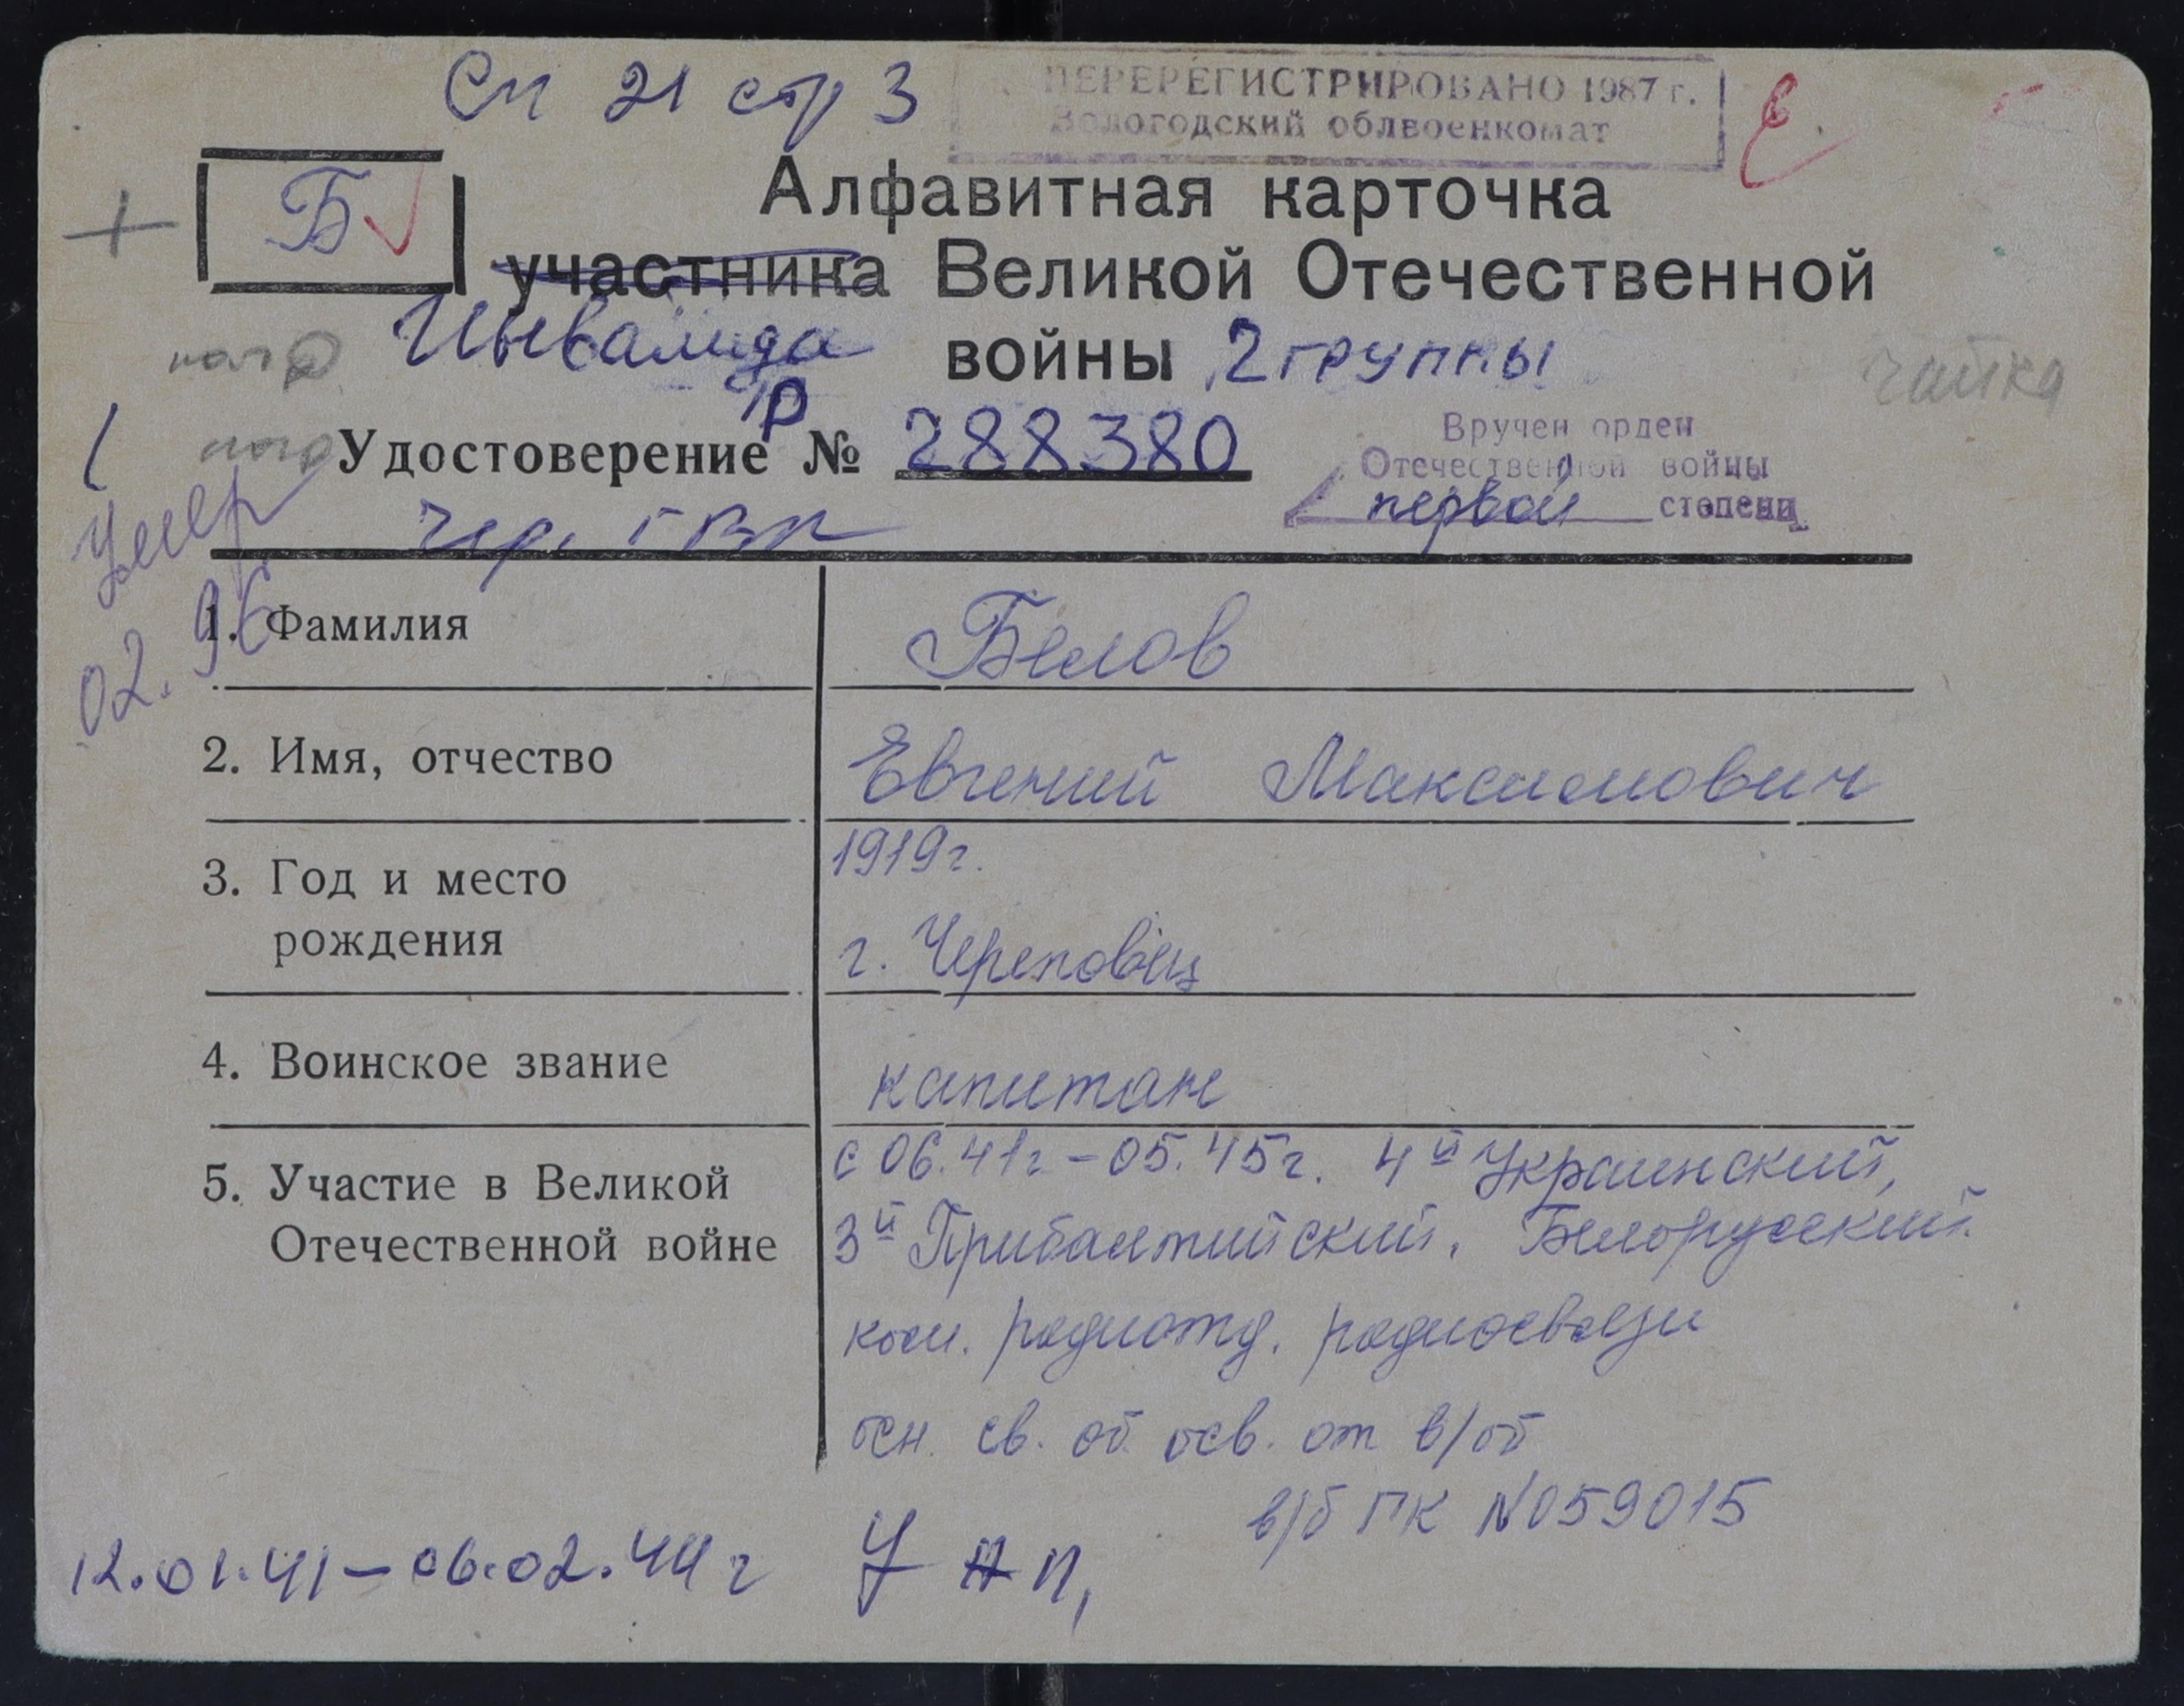 Сп 21 стр 3
ПЕРЕРЕГИСТРИРОВАНО 1987 г.
Вологодский облвоенкомат
Б
Алфавитная карточка
участника Великой Отечественной
Инвалида войны 2 группы
чайка
Удостоверение № 288380
Вручен орден
Отечественной войны
первой степени
Умер
02.96
чер. ГВК
1. Фамилия Белов
2. Имя, отчество Евгений Максимович
3. Год и место рождения 1919г.
г. Череповец
4. Воинское звание капитан
5. Участие в Великой Отечественной войне с 06.41г - 05.45г. 4й Украинский,
3й Прибалтийский, Белорусский.
ком. радиоотд. радиосвязи
осн. св. об осв. от в/об
в/б ГК №059015
12.01.41 - 06.02.44 г